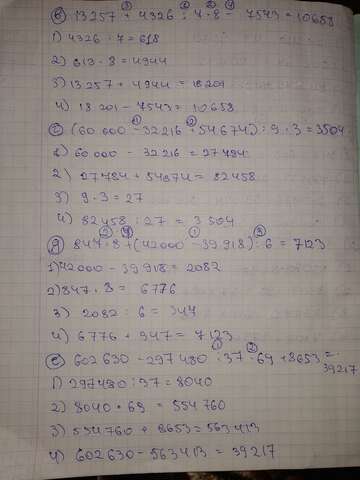 в) 13257 + 4326 : 7 · 8 - 7543 = 10658
1) 4326 : 7 = 618
2) 618 · 8 = 4944
3) 13257 + 4944 = 18201
4) 18201 - 7543 = 10658
г) (60 000 - 32216 + 54674) : 9 · 3 = 3504
1) 60 000 - 32216 = 27784
2) 27784 + 54674 = 82458
3) 9 · 3 = 27
4) 82458 : 27 = 3504
д) 847 · 8 + (42000 - 39918) : 6 = 7123
1) 42000 - 39918 = 2082
2) 847 · 8 = 6776
3) 2082 : 6 = 347
4) 6776 + 347 = 7123
е) 602630 - 297480 : 37 · 69 + 8653 =
39217
1) 297480 : 37 = 8040
2) 8040 · 69 = 554760
3) 554760 + 8653 = 563413
4) 602630 - 563413 = 39217